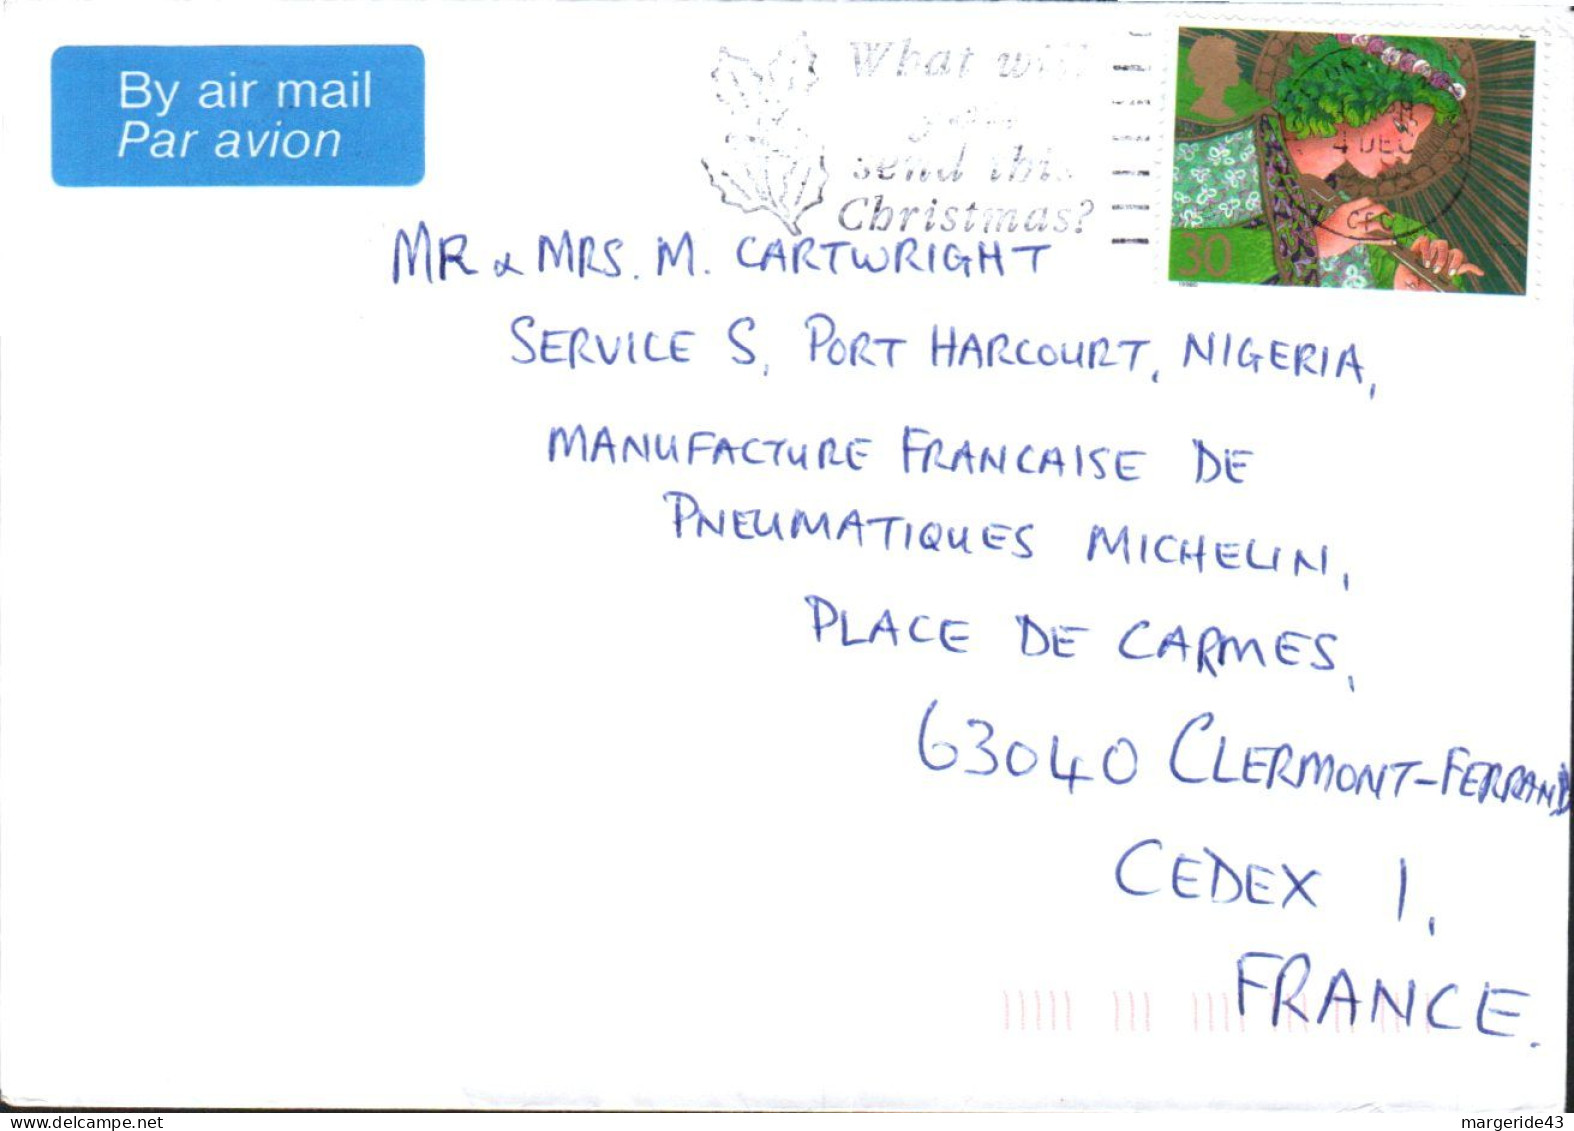 By air mail
Par avion
What will
you
send this
Christmas?
4 DEC
30
MR & MRS. M. CARTWRIGHT
SERVICE S, PORT HARCOURT, NIGERIA,
MANUFACTURE FRANCAISE DE
PNEUMATIQUES MICHELIN,
PLACE DE CARMES,
63040 CLERMONT-FERRAND
CEDEX 1,
FRANCE.
delcampe.net
margeride43